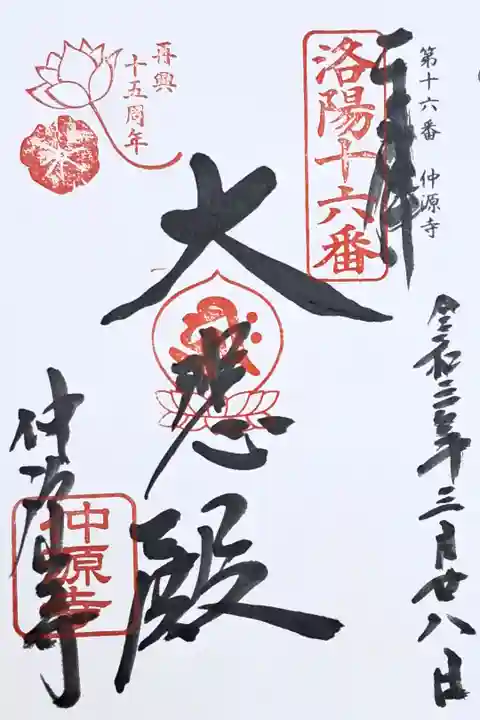 第十六番 仲源寺
奉拝
洛陽十六番
令和三年三月廿八日
再興
十五周年
大悲殿
仲源寺
仲源寺